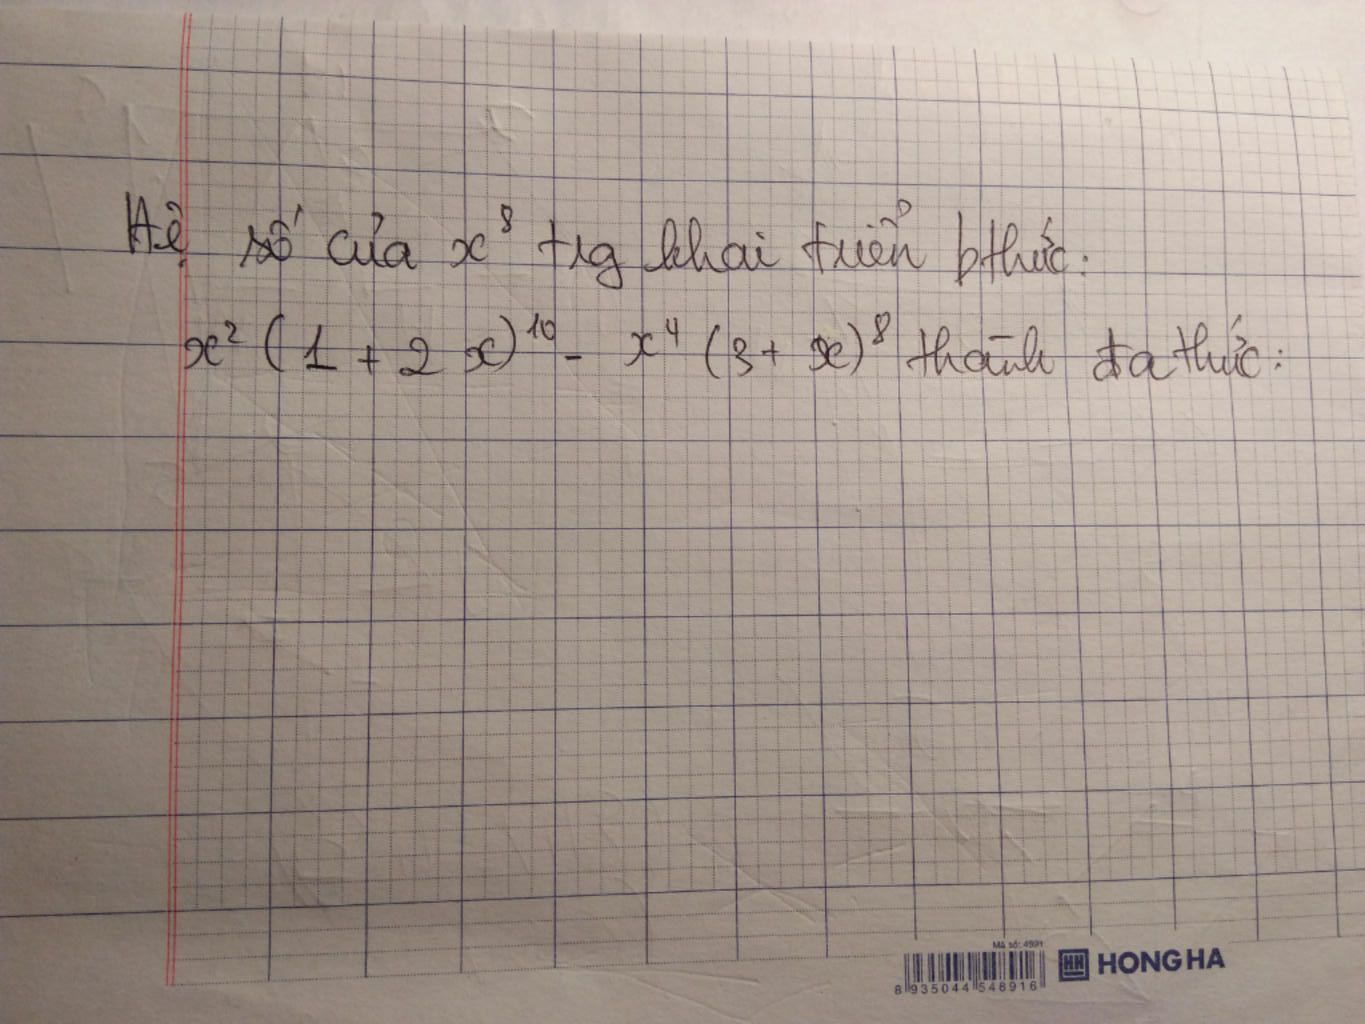 Hệ số của x⁸ trg khai triển bthức:
x² (1 + 2x)¹⁰ - x⁴ (3 + x)⁸ thành đa thức:
Mã số: 4891
8 935044 548916
HH HONG HA